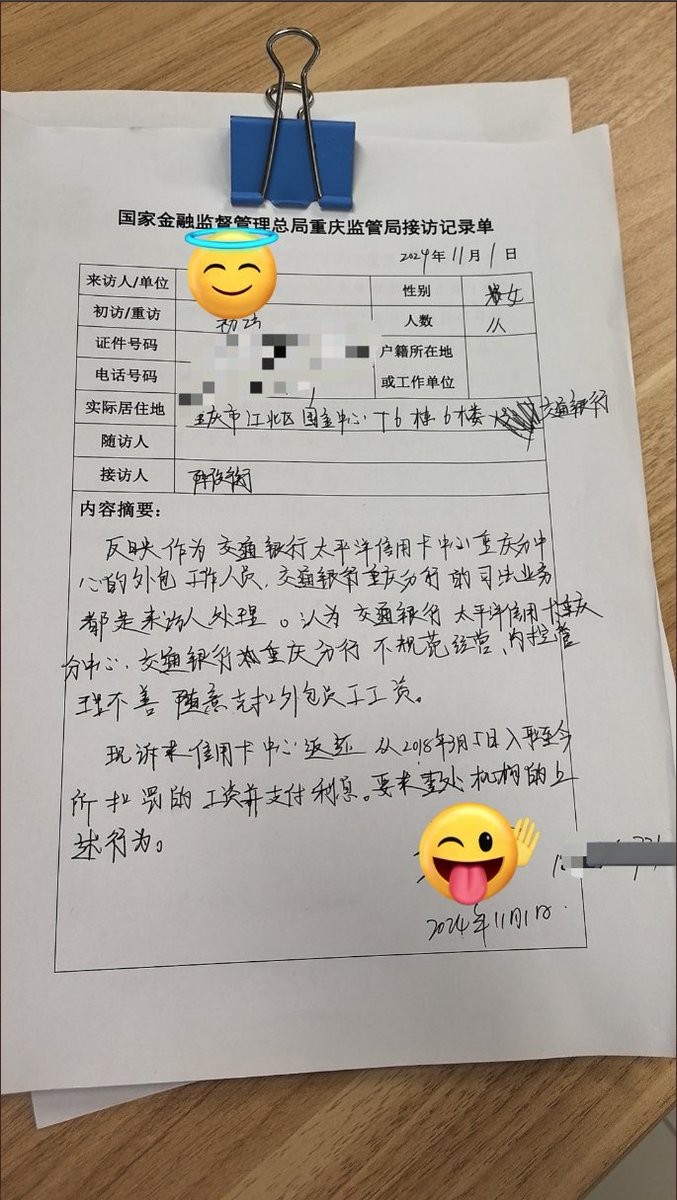 国家金融监督管理总局重庆监管局接访记录单
2024年11月1日
来访人/单位 性别 女
初访/重访 初访 人数 1人
证件号码 户籍所在地
电话号码 或工作单位
实际居住地 重庆市江北区国金中心T6栋6楼 交通银行
随访人
接访人
内容摘要：
反映作为交通银行太平洋信用卡中心重庆分中
心的外包工作人员，交通银行重庆分行的司出业务
都是来访人处理。认为交通银行太平洋信用卡重庆
分中心、交通银行重庆分行不规范经营、内控管
理不善 随意克扣外包员工工资。
现诉求信用卡中心返还从2018年3月5日入职至今
所扣罚的工资并支付利息。要求查处机构的上
述行为。
2024年11月1日